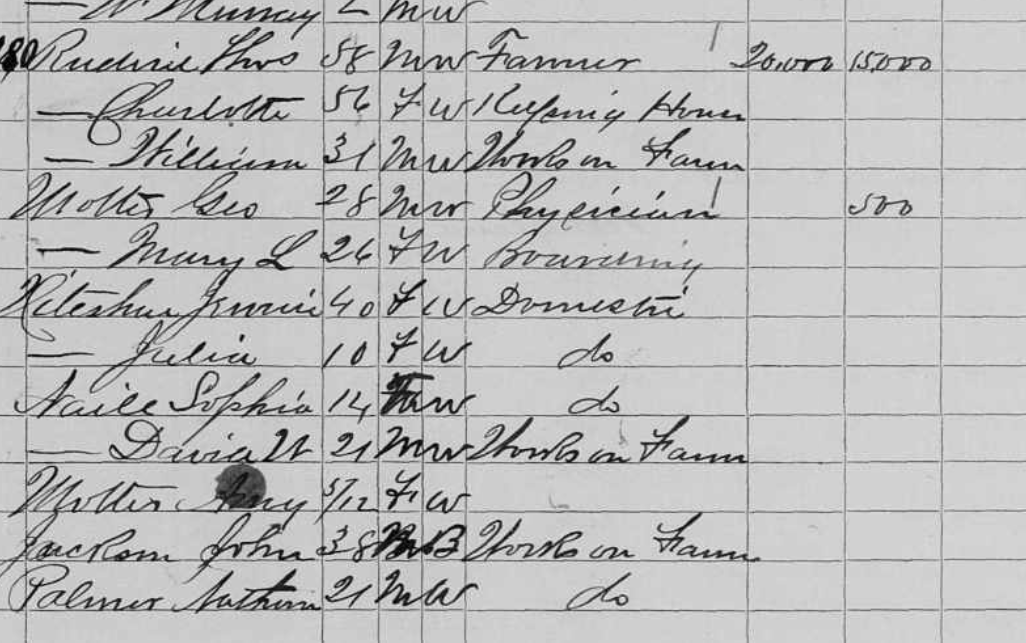 — W. Murray 2 M W
180 Rudisil Thos 58 M W Farmer 1 20,000 15,000
— Charlotte 56 F W Keeping House
— William 31 M W Works on Farm
Motter Geo 28 M W Physician 1 500
— Mary L 26 F W Boarding
40 F W Domestic
— Julia 10 F W do
Naill Sophia 14 F W do
— David W 21 M W Works on Farm
Motter Amy 5/12 F W
Jackson John 38 M B Works on Farm
Palmer Nathan 21 M W do